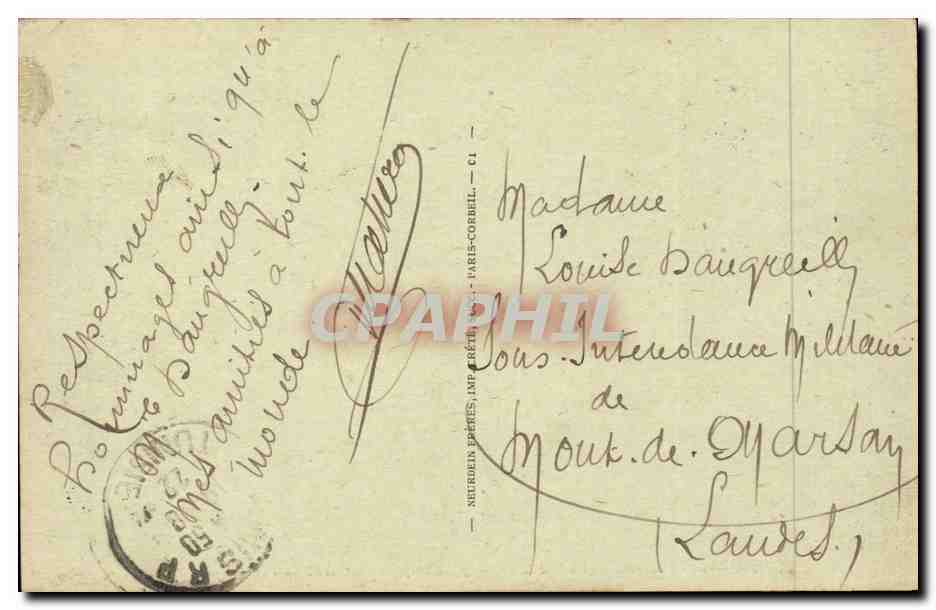 Respectueux
hommages ainsi qu'à
Mr Daugreilh.
Mes amitiés à tout le
monde
CPARHIL
NEURDEIN FRÈRES, IMP. CRÉTÉ, SUCC. - PARIS-CORBEIL. — C1 —
Madame
Louise Daugreilh
Sous-Intendance Militaire
de
Mont-de-Marsan
(Landes.)
R P